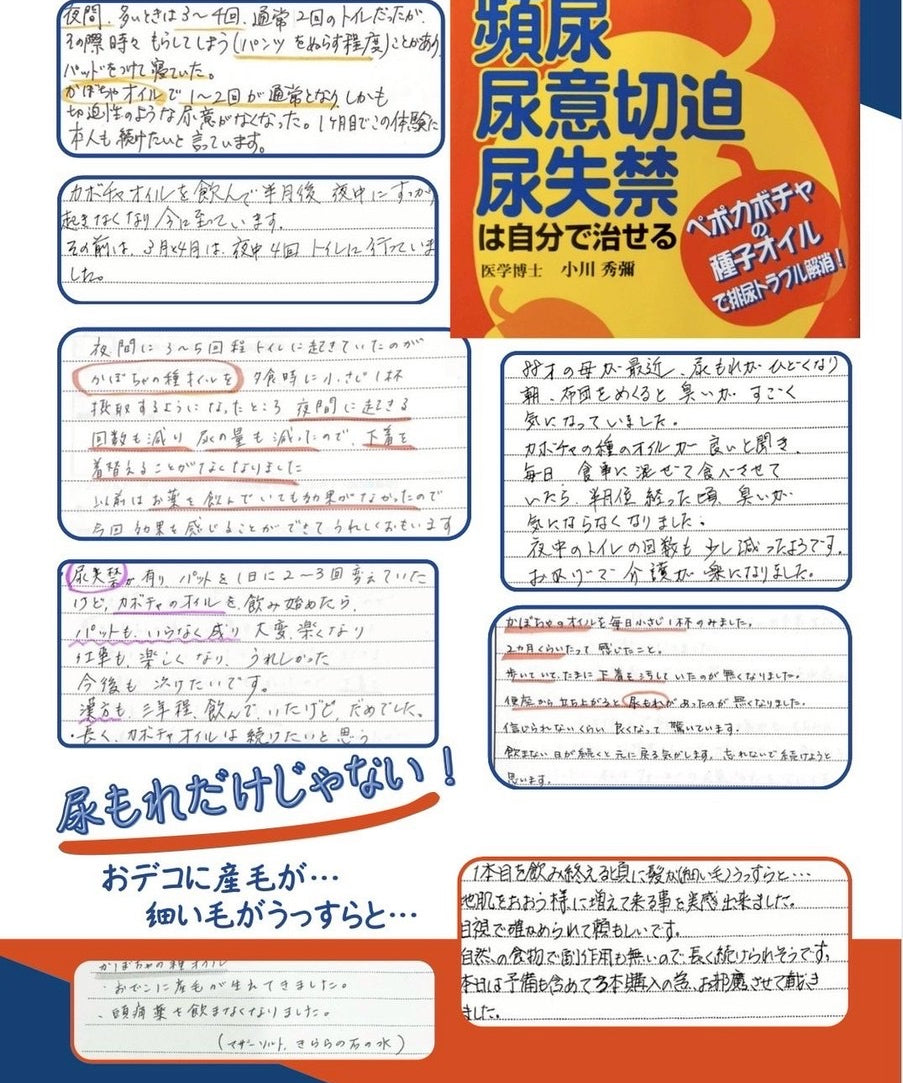 夜間、多いときは3〜4回、通常2回のトイレだったが
その際時々もらしてしまう(パンツをぬらす程度)ことがあり
パッドをつけて寝ていた。
かぼちゃオイルで1〜2回が通常となり、しかも
切迫性のような尿意がなくなった。1ヶ月目でこの体験に
本人も続けたいと言っています。
頻尿
尿意切迫
尿失禁
は自分で治せる
医学博士 小川 秀彌
ペポカボチャ
の
種子オイル
で排尿トラブル解消!
カボチャオイルを飲んで半月後 夜中にすっかり
起きなくなり今に至っています。
その前は、3月と4月は、夜中4回トイレに行っていま
した。
夜間に3〜5回程トイレに起きていたのが
かぼちゃの種オイルを夕食時に小さじ1杯
摂取するようになったところ 夜間に起きる
回数も減り 尿の量も減ったので、下着を
着替えることがなくなりました
以前はお薬を飲んでいても効果がなかったので
今回効果を感じることができてうれしくおもいます
88才の母が最近、尿もれがひどくなり
朝、布団をめくると臭いがすごく
気になっていました。
カボチャの種のオイルが良いと聞き、
毎日 食事に混ぜて食べさせて
いたら、半月位経った頃、臭いが
気にならなくなりました。
夜中のトイレの回数も少し減ったようです。
おかげで介護が楽になりました。
・尿失禁が有り パットを1日に2〜3回変えていた
けど、カボチャのオイルを飲み始めたら、
パットも、いらなく成り 大変、楽になり
仕事も、楽しくなり、うれしかった
今後も 次けたいです。
漢方も、三年程、飲んで、いたけど、だめでした。
・長く、カボチャオイルは続けたいと思う
かぼちゃのオイルを毎日小さじ1杯のみました。
2ヵ月くらいたって感じたこと。
歩いていて、たまに下着を汚していたのが無くなりました。
便座から立ち上がると尿もれがあったのが無くなりました。
信じられないくらい良くなって驚いています。
飲まない日が続くと元に戻る気がします、忘れないで続けようと
思います。
尿もれだけじゃない!
おデコに産毛が…
細い毛がうっすらと…
1本目を飲み終える頃に髪が(細い毛)うっすらと…
地肌をおおう様に増えて来る事を実感出来ました。
目視で確かめられて頼もしいです。
自然の食物で副作用も無いので長く続けられそうです。
本日は予備も含めて3本購入の為、お邪魔させて戴き
ました。
かぼちゃの種オイル
・おでこに産毛が生えてきました。
・頭痛薬を飲まなくなりました。
(マザーソルト、きららの石の水)